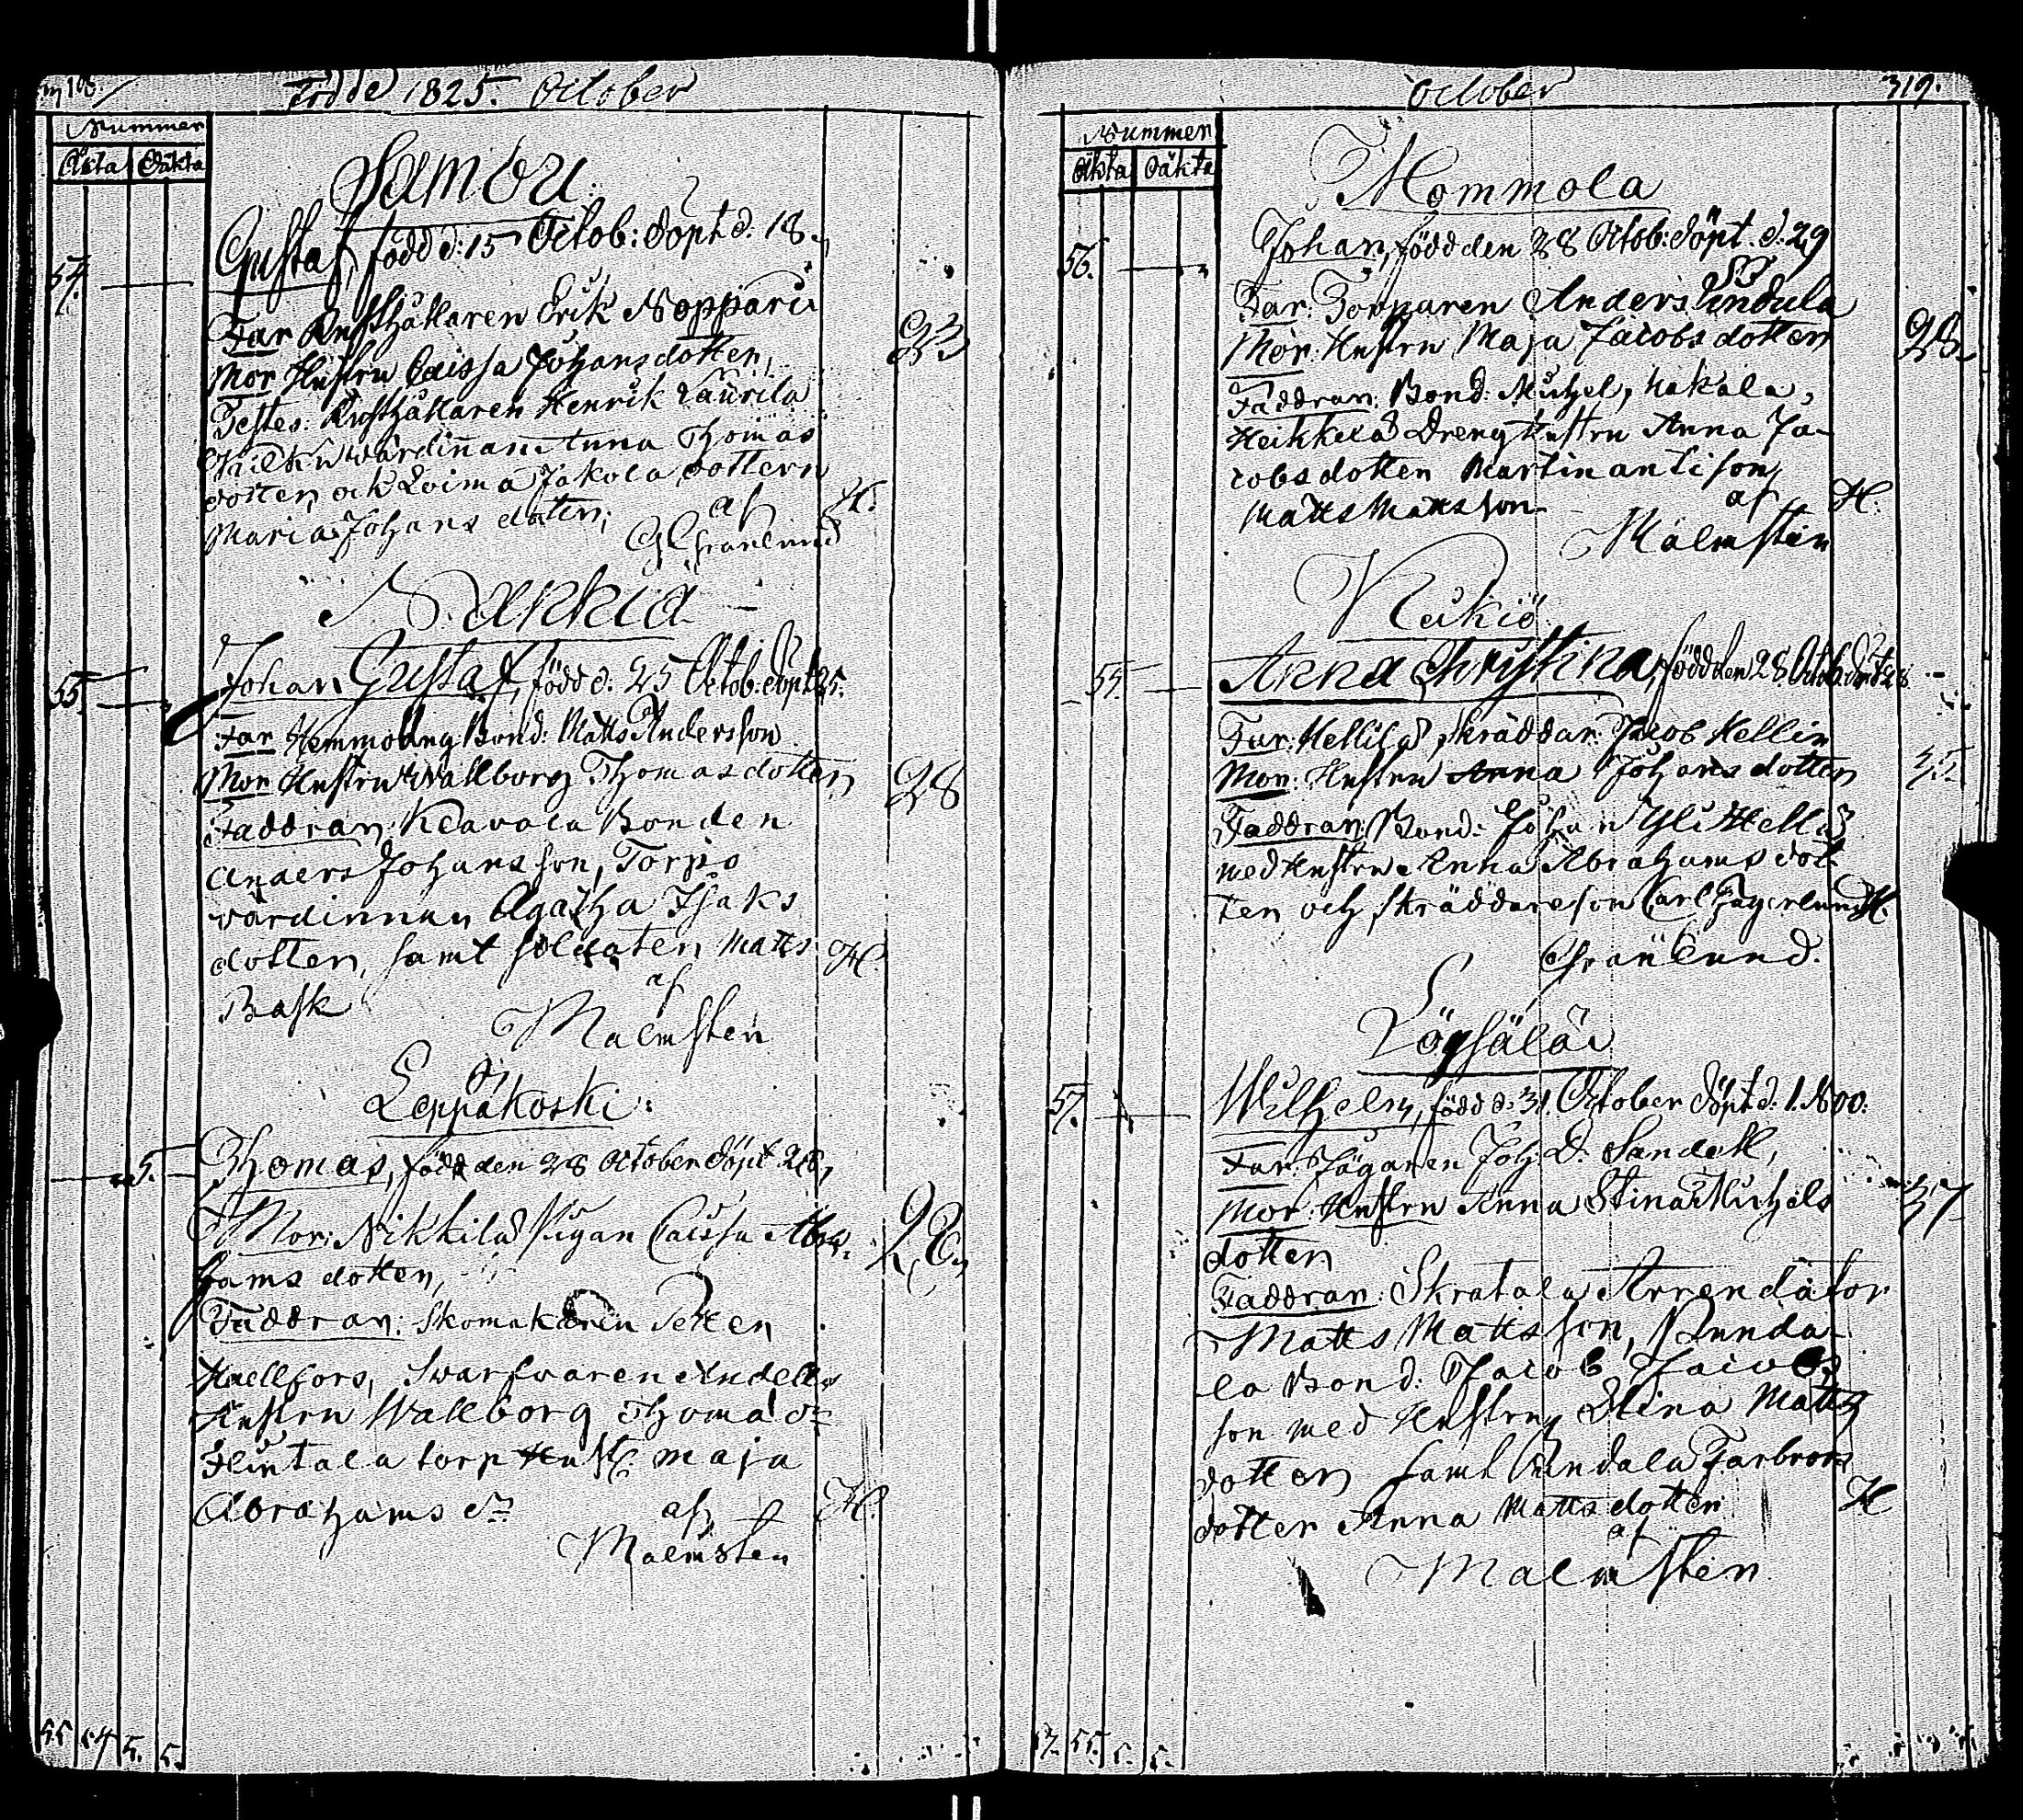 Födde 1825. October
Nummer
Äkta Oäkta
Gustaf, född d: 15 Octob: döpt d. 18.
54.
Far Rusthållaren Erik Noppari
33
Mor Hustru Caissa Johansdotter,
Testes: Rusthållaren Henrik Laurila
wärdinnan Anna Thomas
dotter, och Loima Jakola dottern
Maria Johans dotter;
af H.
Granlund
Johan Gustaf, född d. 25 Octob: döpt 25.
55.
Far Bond: Matts Andersson
Mor Hustru Wallborg Thomasdotter
28
Faddrar: Keavola Bonden
Anders Johansson, Torpo
värdinnan Agatha Isaks
dotter, samt soldaten Matts H.
Bask
af
Malmsten
Leppäkoski.
5. Thomas, född den 28 October döpt 28,
Mor: Nikkilä Pigan Caissa Abra
28
hams dotter,
Faddrar: Skomakaren Petter
Haellfors, Swarfwaren
Hustru Wallborg Thomä dr
torp Hust. Maja
Abrahams dr
af H.
Malmsten
55 54 5. 5.
October 319.
Nummer
Äkta Oäkta
Mommola
Johan, född den 28 Octob: döpt. d. 29
56.
Far: Torparen Anders
28
Mor: Hustru Maja Jacobsdotter
Faddrar: Bond: Michel, Hakala,
Heikkilä Dreng Hustru Anna Ja-
cobsdotter Martin anti son
Matts Matsson
af H.
Malmsten
Keikiö
Anna Christina, född den 28 Octob. döpt 28
55.
Far: Hellilä, Skräddar: Jacob Hellin
Mor: Hustru Anna Johans dotter
35.
Faddrar: Bond: Johan Yli Hellä
med Hustru Anna Abrahams dot
ter och skräddareson Carl Fagerlund H.
Granlund.
57. Wilhelm, född d. 31. October döpt d: 1. Nov:
Far: Jägaren Joh: D: Sandell,
Mor: Hustru Anna Stina Michels
37
dotter
Faddrar: Skratala Arrendator
Matts Mattsson, Runda-
la Bond: Jacob Jacobs
son med Hustru Stina Matts
dotter samt Rundala Farbrors
dotter Anna Matts dotter H
af
Malmsten
55. 5. 5.